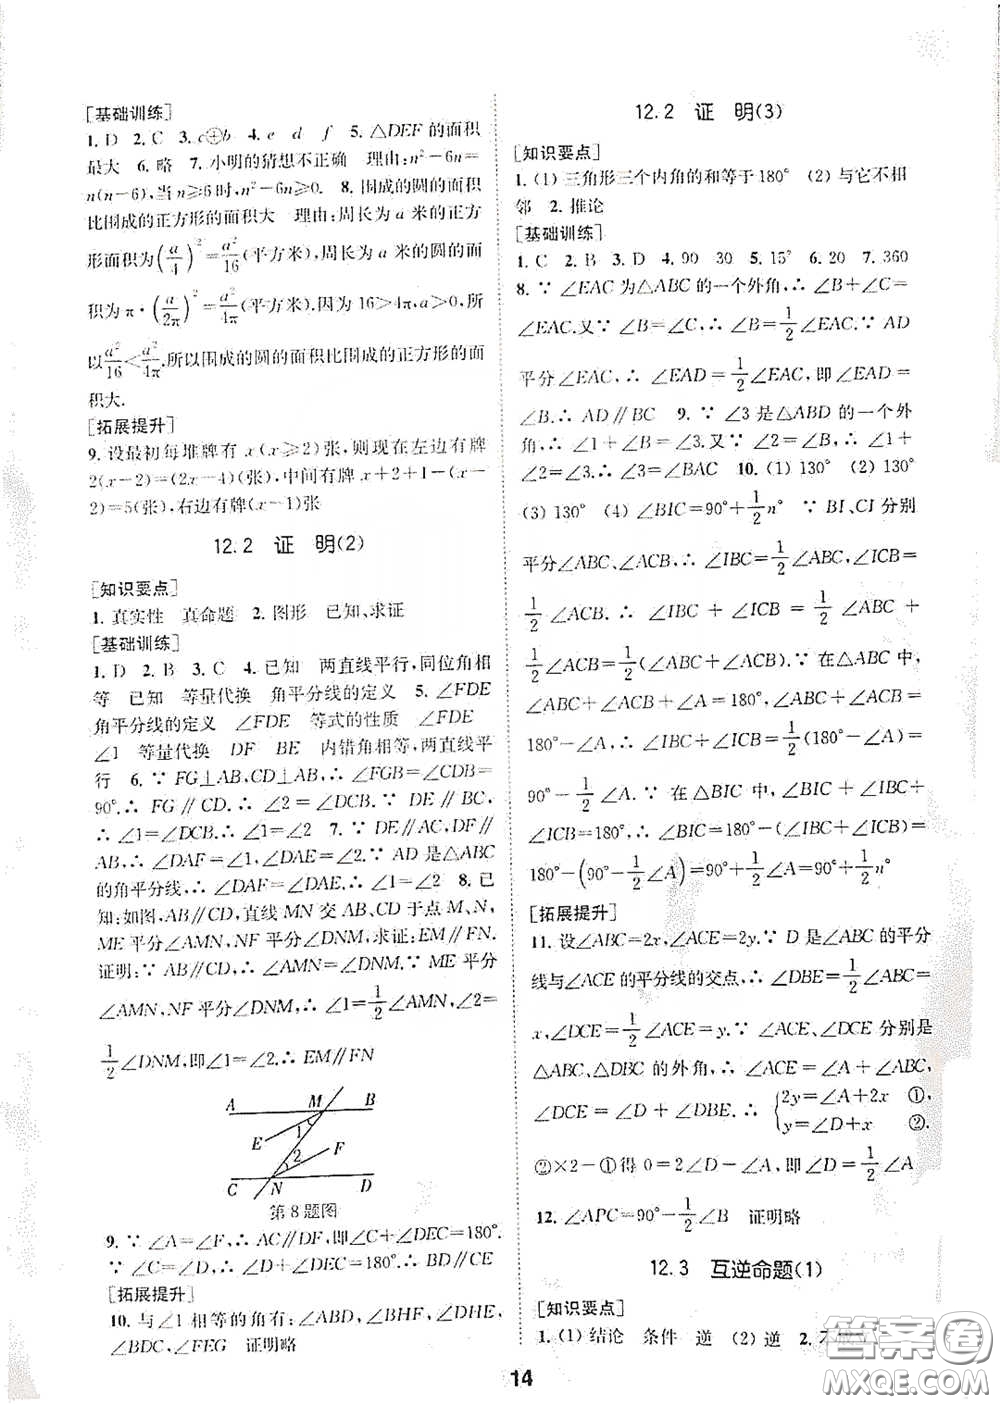 [基础训练]
1. D 2. C 3. c⊕b 4. e d f 5. △DEF的面积
最大 6. 略 7. 小明的猜想不正确 理由:n²-6n=
n(n-6),当n≥6时,n²-6n≥0. 8. 围成的圆的面积
比围成的正方形的面积大 理由:周长为a米的正方
形面积为(a/4)²=a²/16(平方米),周长为a米的圆的面
积为π·(a/2π)²=a²/4π(平方米).因为16>4π,a>0,所
以a²/16<a²/4π.所以围成的圆的面积比围成的正方形的面
积大.
[拓展提升]
9. 设最初每堆牌有x(x≥2)张,则现在左边有牌
2(x-2)=(2x-4)(张),中间有牌x+2+1-(x-
2)=5(张),右边有牌(x-1)张
12.2 证 明(2)
[知识要点]
1. 真实性 真命题 2. 图形 已知、求证
[基础训练]
1. D 2. B 3. C 4. 已知 两直线平行,同位角相
等 已知 等量代换 角平分线的定义 5. ∠FDE
角平分线的定义 ∠FDE 等式的性质 ∠FDE
∠1 等量代换 DF BE 内错角相等,两直线平
行 6. ∵ FG⊥AB,CD⊥AB,∴ ∠FGB=∠CDB=
90°.∴ FG∥CD.∴ ∠2=∠DCB.∵ DE∥BC,
∴ ∠1=∠DCB.∴ ∠1=∠2 7. ∵ DE∥AC,DF∥
AB,∴ ∠DAF=∠1,∠DAE=∠2.∵ AD是△ABC
的角平分线,∴ ∠DAF=∠DAE.∴ ∠1=∠2 8. 已
知:如图,AB∥CD,直线MN交AB、CD于点M、N,
ME平分∠AMN,NF平分∠DNM.求证:EM∥FN.
证明:∵ AB∥CD,∴ ∠AMN=∠DNM.∵ ME平分
∠AMN,NF平分∠DNM,∴ ∠1=1/2∠AMN,∠2=
1/2∠DNM,即∠1=∠2.∴ EM∥FN
A M B
E 1
2 F
C N D
第8题图
9. ∵ ∠A=∠F,∴ AC∥DF,即∠C+∠DEC=180°.
∵ ∠C=∠D,∴ ∠D+∠DEC=180°.∴ BD∥CE
[拓展提升]
10. 与∠1相等的角有:∠ABD、∠BHF、∠DHE、
∠BDC、∠FEG 证明略
12.2 证 明(3)
[知识要点]
1. (1) 三角形三个内角的和等于180° (2) 与它不相
邻 2. 推论
[基础训练]
1. C 2. B 3. D 4. 90 30 5. 15° 6. 20 7. 360
8. ∵ ∠EAC为△ABC的一个外角,∴ ∠B+∠C=
∠EAC.又∵ ∠B=∠C,∴ ∠B=1/2∠EAC.∵ AD
平分∠EAC,∴ ∠EAD=1/2∠EAC,即∠EAD=
∠B.∴ AD∥BC 9. ∵ ∠3是△ABD的一个外
角,∴ ∠1+∠B=∠3.又∵ ∠3=∠B+∠2,∴ ∠1=
∠2.∴ ∠3=∠BAC 10. (1) 130° (2) 130°
(3) 130° (4) ∠BIC=90°+1/2n° ∵ BI、CI分别
平分∠ABC、∠ACB,∴ ∠IBC=1/2∠ABC,∠ICB=
1/2∠ACB.∴ ∠IBC+∠ICB=1/2∠ABC+
1/2∠ACB=1/2(∠ABC+∠ACB).∵ 在△ABC中,
∠ABC+∠ACB+∠A=180°,∴ ∠ABC+∠ACB=
180°-∠A,∴ ∠IBC+∠ICB=1/2(180°-∠A)=
90°-1/2∠A.∵ 在△BIC中,∠BIC+∠IBC+
∠ICB=180°,∴ ∠BIC=180°-(∠IBC+∠ICB)=
180°-(90°-1/2∠A)=90°+1/2∠A=90°+1/2n°
[拓展提升]
11. 设∠ABC=2x,∠ACE=2y.∵ D是∠ABC的平分
线与∠ACE的平分线的交点,∴ ∠DBE=1/2∠ABC=
x,∠DCE=1/2∠ACE=y.∵ ∠ACE、∠DCE分别是
△ABC、△DBC的外角,∴ ∠ACE=∠A+∠ABC,
∠DCE=∠D+∠DBE.∴ {2y=∠A+2x ①,
y=∠D+x ②.
②×2-①得0=2∠D-∠A,即∠D=1/2∠A
12. ∠APC=90°-1/2∠B 证明略
12.3 互逆命题(1)
[知识要点]
1. (1) 结论 条件 逆 (2) 逆 2.
14
答案卷
MXQE.COM